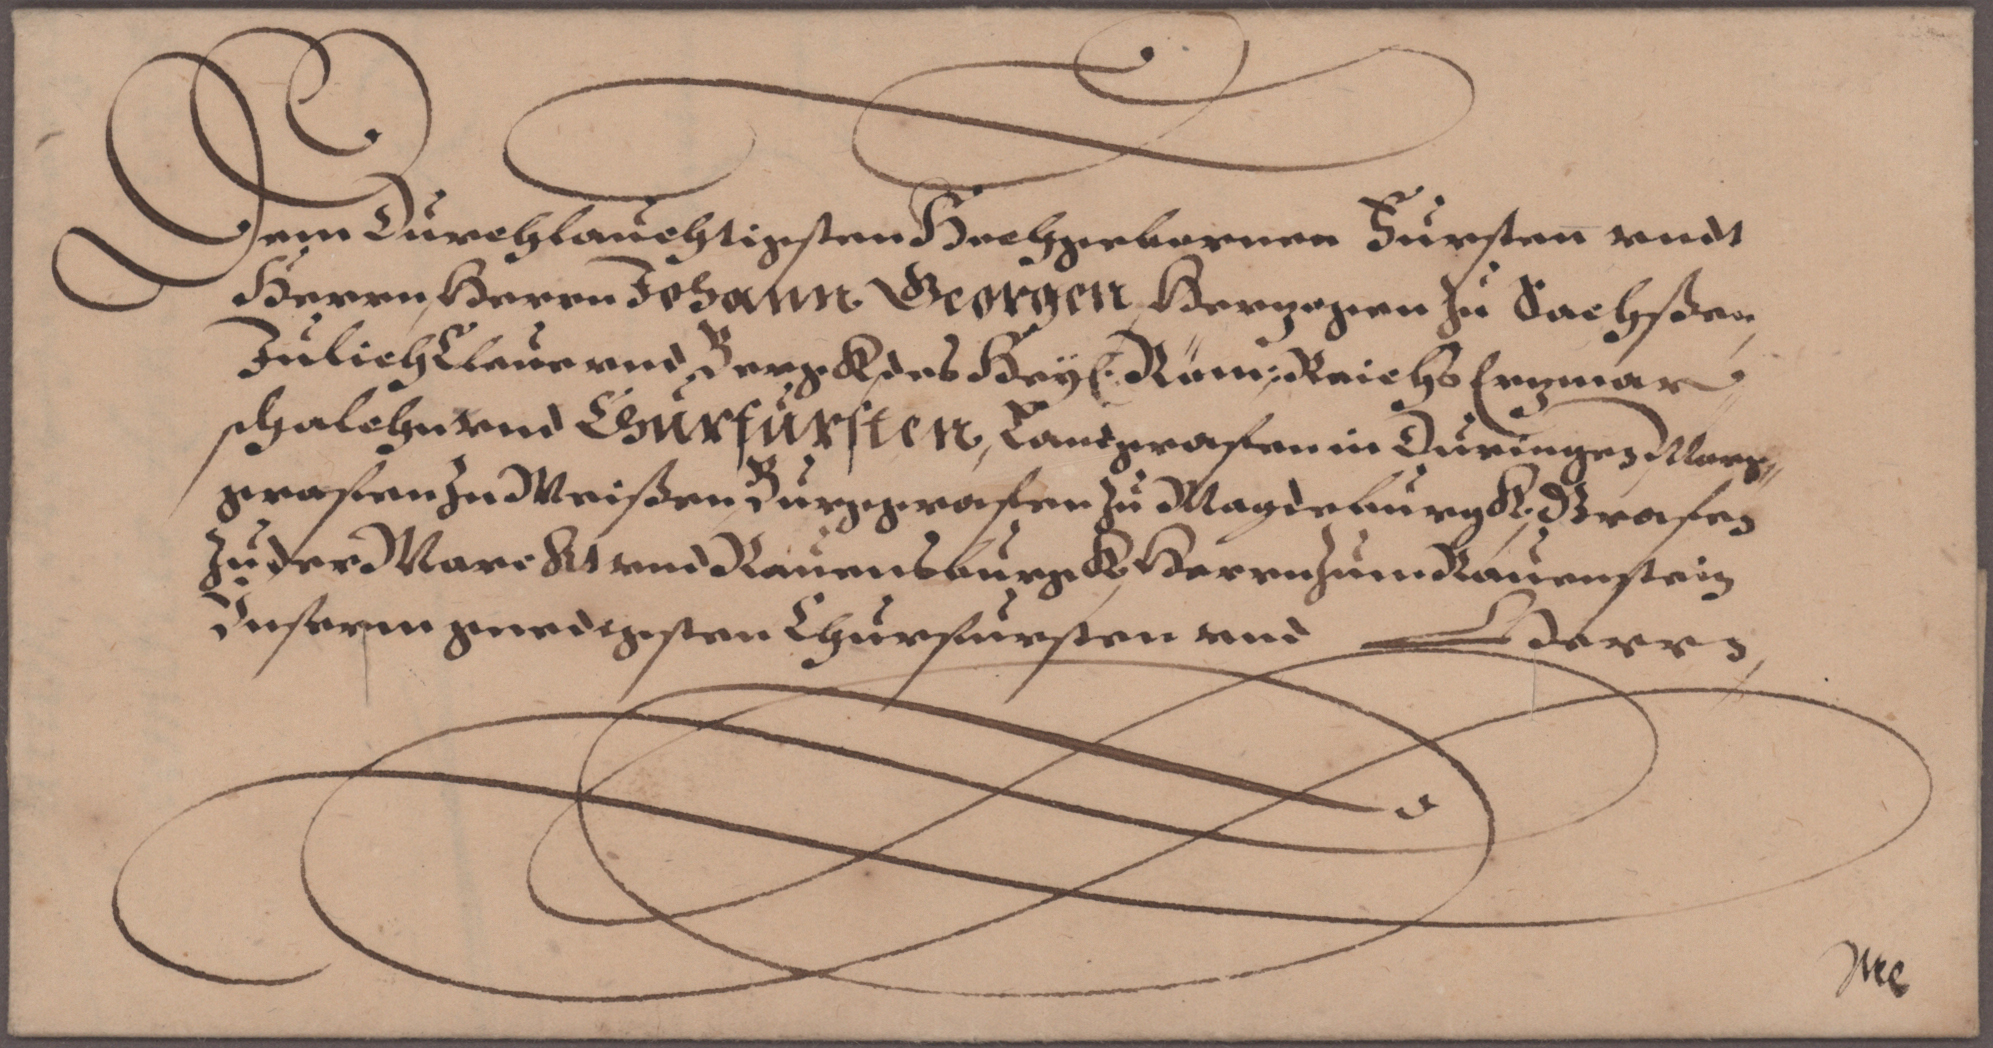 Dem Durchlauchtigsten Hochgebornen Fursten vndt
Herrn, Herrn Johann Georgen, Herzogen zu Sachßen,
Julich Cleue vnd Berg &, des Heyl: Röm: Reichs Erzmar
schalchn vnd Churfürsten, Landgrafen in Duringen Marg
grafen zu Meißen, Burggrafen zu Magdeburg &, Grafen
zu der Marckt vnd Rauensburg &, Herrn zum Rauenstein
Vnserm gnedigsten Churfursten vnd Herrn,